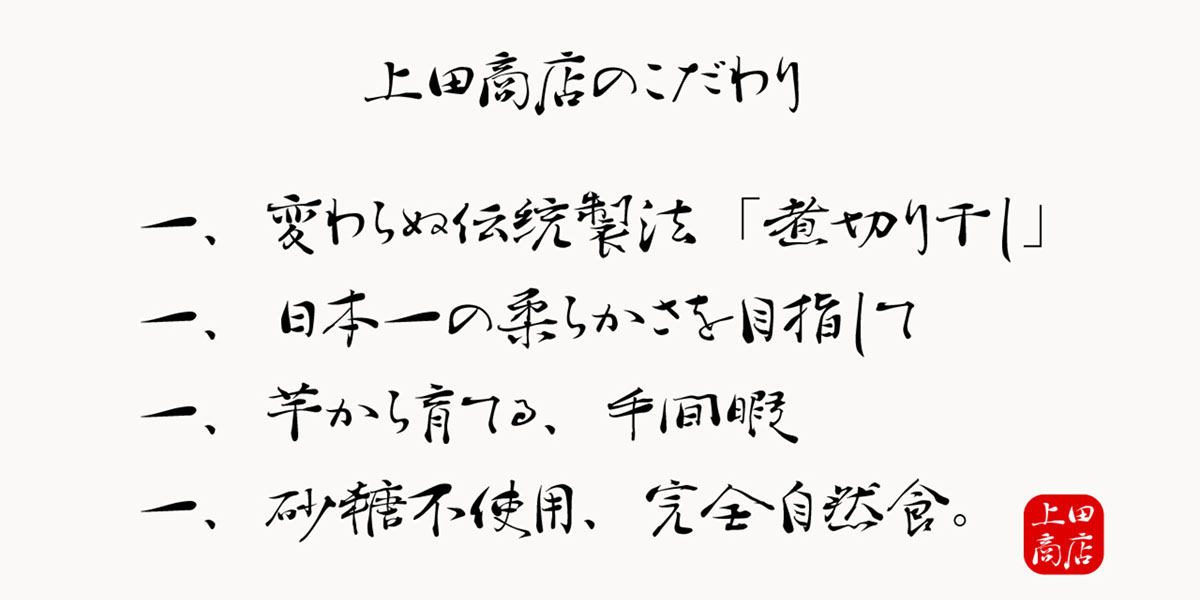 上田商店のこだわり
一、変わらぬ伝統製法「煮切り干し」
一、日本一の柔らかさを目指して
一、芋から育てる、手間暇
一、砂糖不使用、完全自然食。
上田
商店